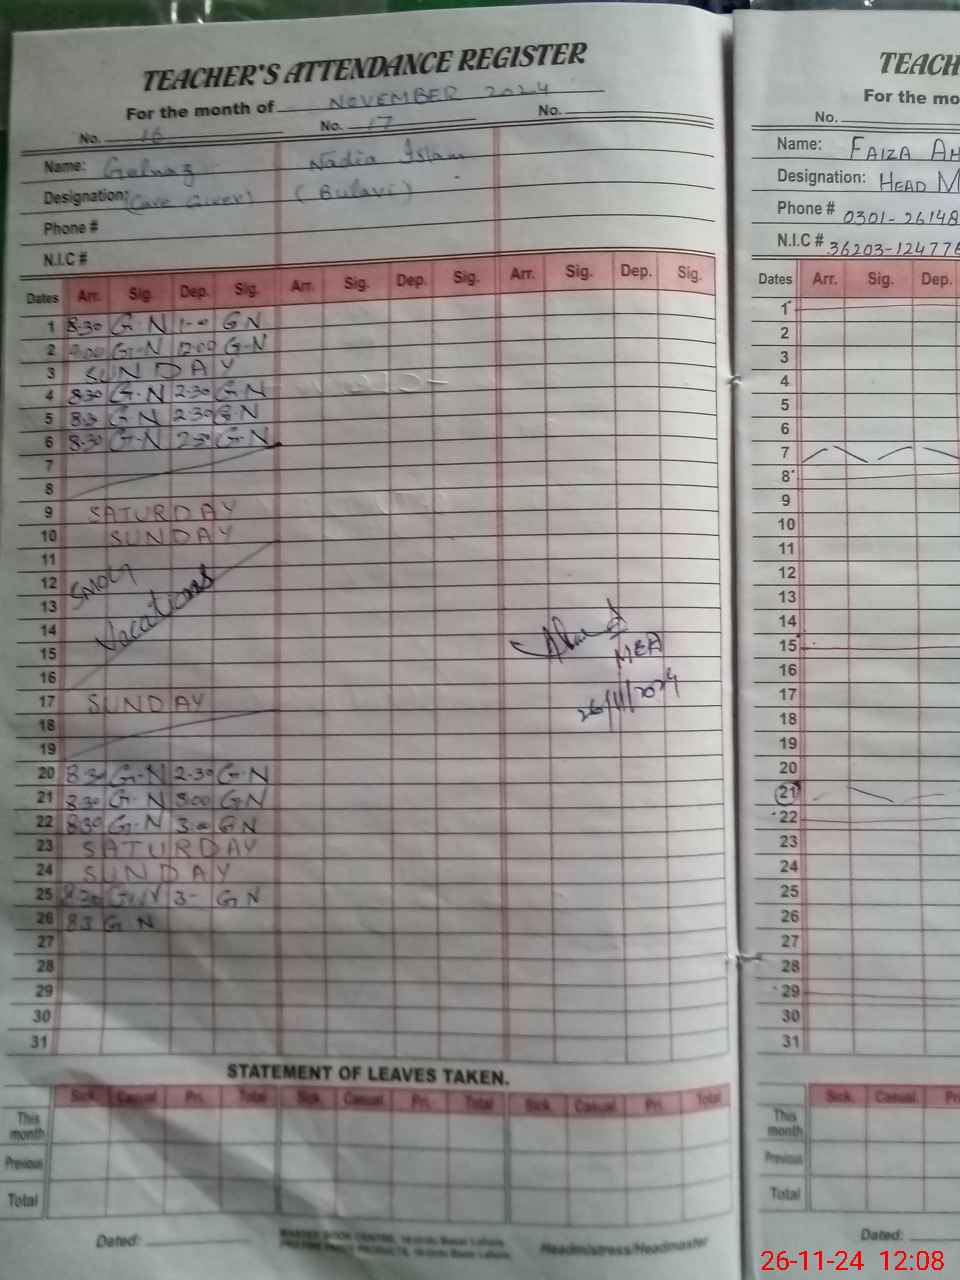 TEACHER'S ATTENDANCE REGISTER
For the month of NOVEMBER 2024
No. 16 No. 17 No.
Name: Gulnaz Nadia Islam
Designation: (Care Giver) (Bulavi)
Phone #
N.I.C #
Dates Arr. Sig. Dep. Sig. Arr. Sig. Dep. Sig. Arr. Sig. Dep. Sig.
1 8.30 G.N G.N
2 9:00 G.N 12:00 G.N
3 SUNDAY
4 8.30 G.N 2.30 G.N
5 8.3 G.N 2.30 G.N
6 8.30 G.N 2.30 G.N
7
8
9 SATURDAY
10 SUNDAY
11
12 SMOG
13
14 Vacations
15
16
17 SUNDAY
18
19
20 8.30 G.N 2.30 G.N
21 8.30 G.N 3.00 G.N
22 8.30 G.N 3.00 G.N
23 SATURDAY
24 SUNDAY
25 8.30 G.N 3- G.N
26 8.3 G.N
27
28
29
30
31
MEA
26/11/2024
STATEMENT OF LEAVES TAKEN.
Sick. Casual. Pri. Total Sick. Casual. Pri. Total Sick. Casual. Pri. Total
This month
Previous
Total
Dated:
Headmistress/Headmaster
TEACH
For the mo
No.
Name: FAIZA AH
Designation: HEAD M
Phone # 0301-26148
N.I.C # 36203-124776
Dates Arr. Sig. Dep.
1
2
3
4
5
6
7
8
9
10
11
12
13
14
15
16
17
18
19
20
21
22
23
24
25
26
27
28
29
30
31
Sick. Casual. Pri
This month
Previous
Total
Dated:
26-11-24 12:08